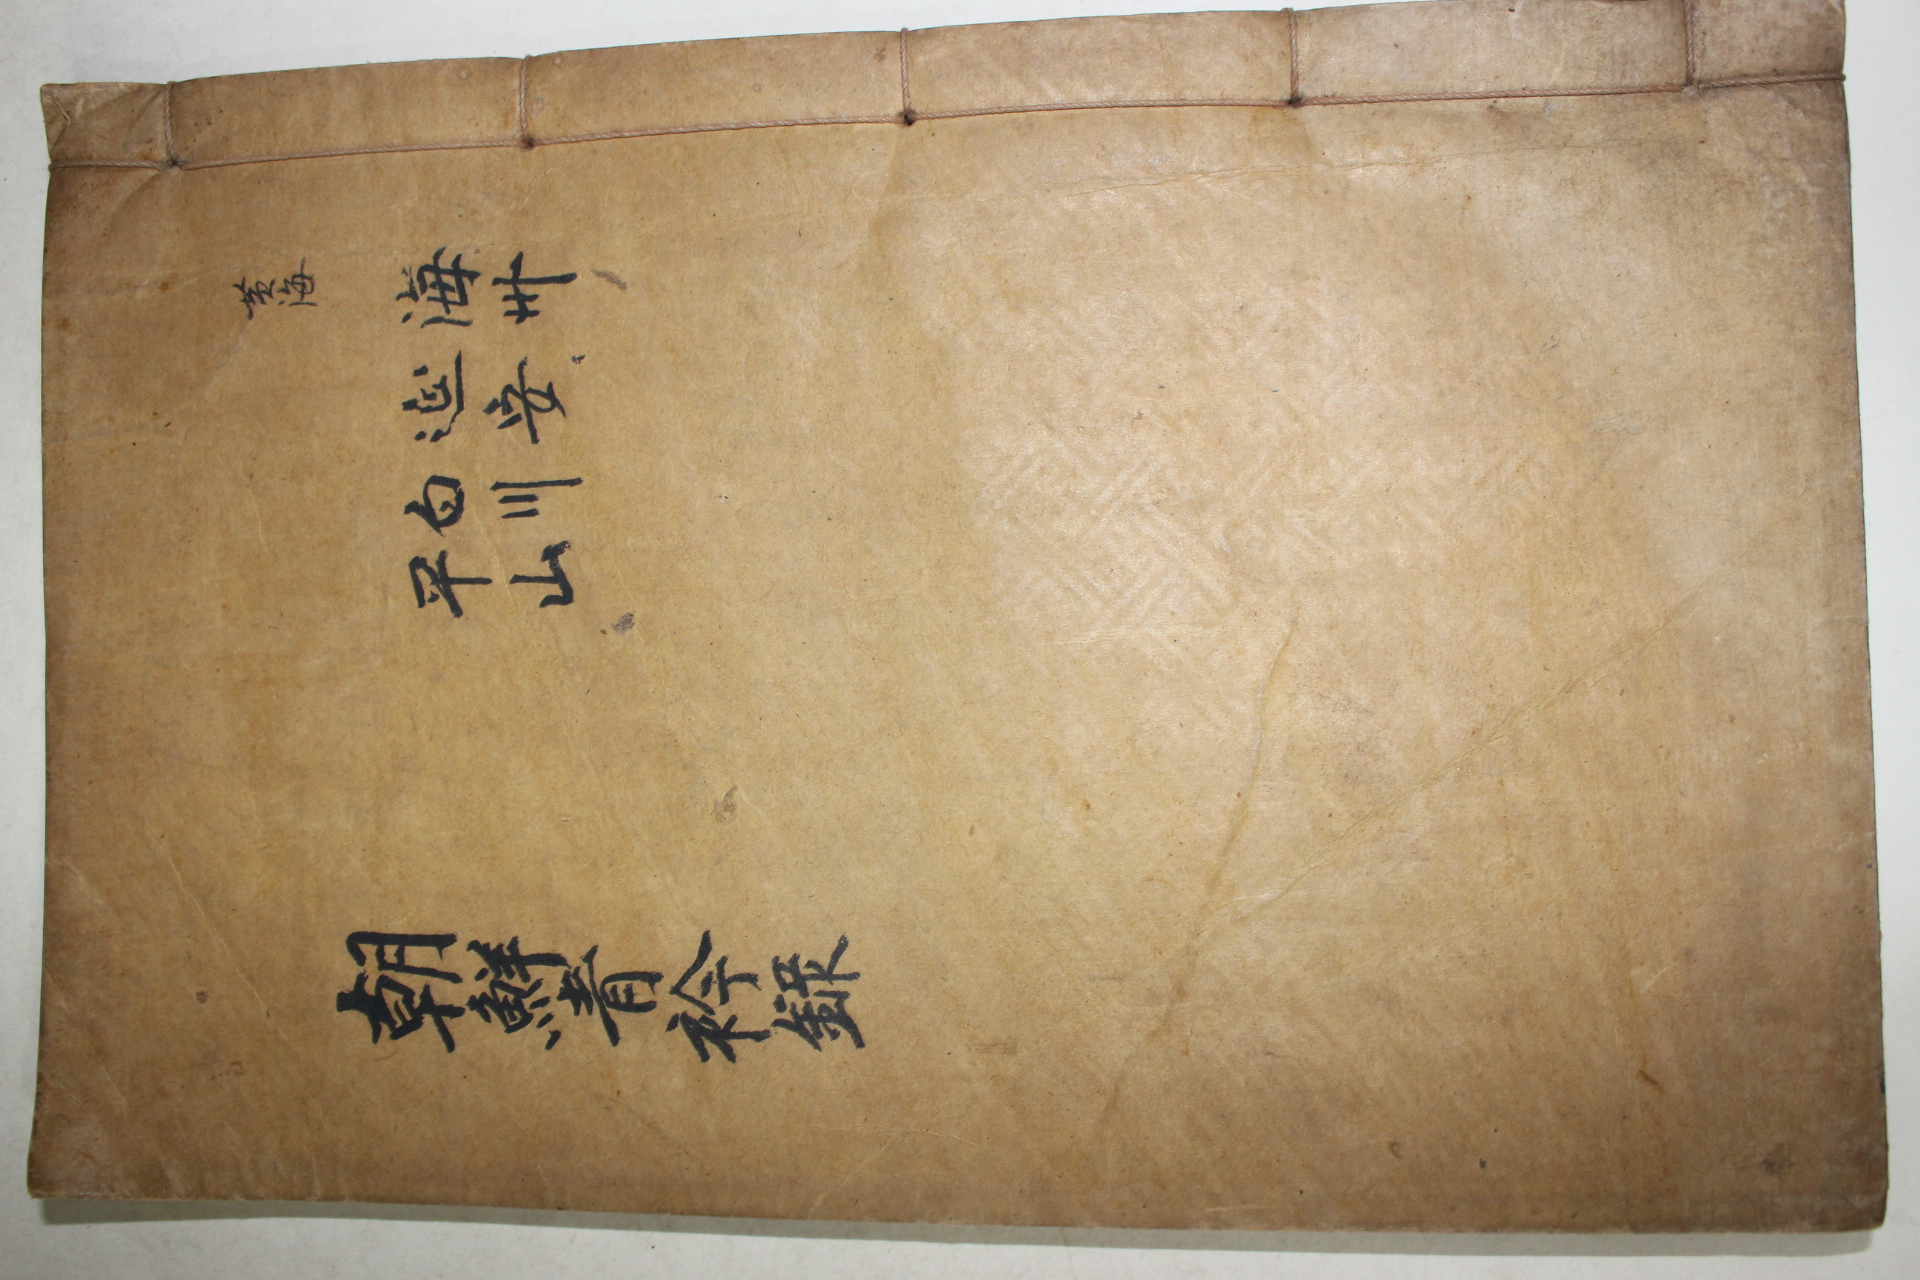 黄海
海州
延安
白川
平山
朝鮮青衿錄